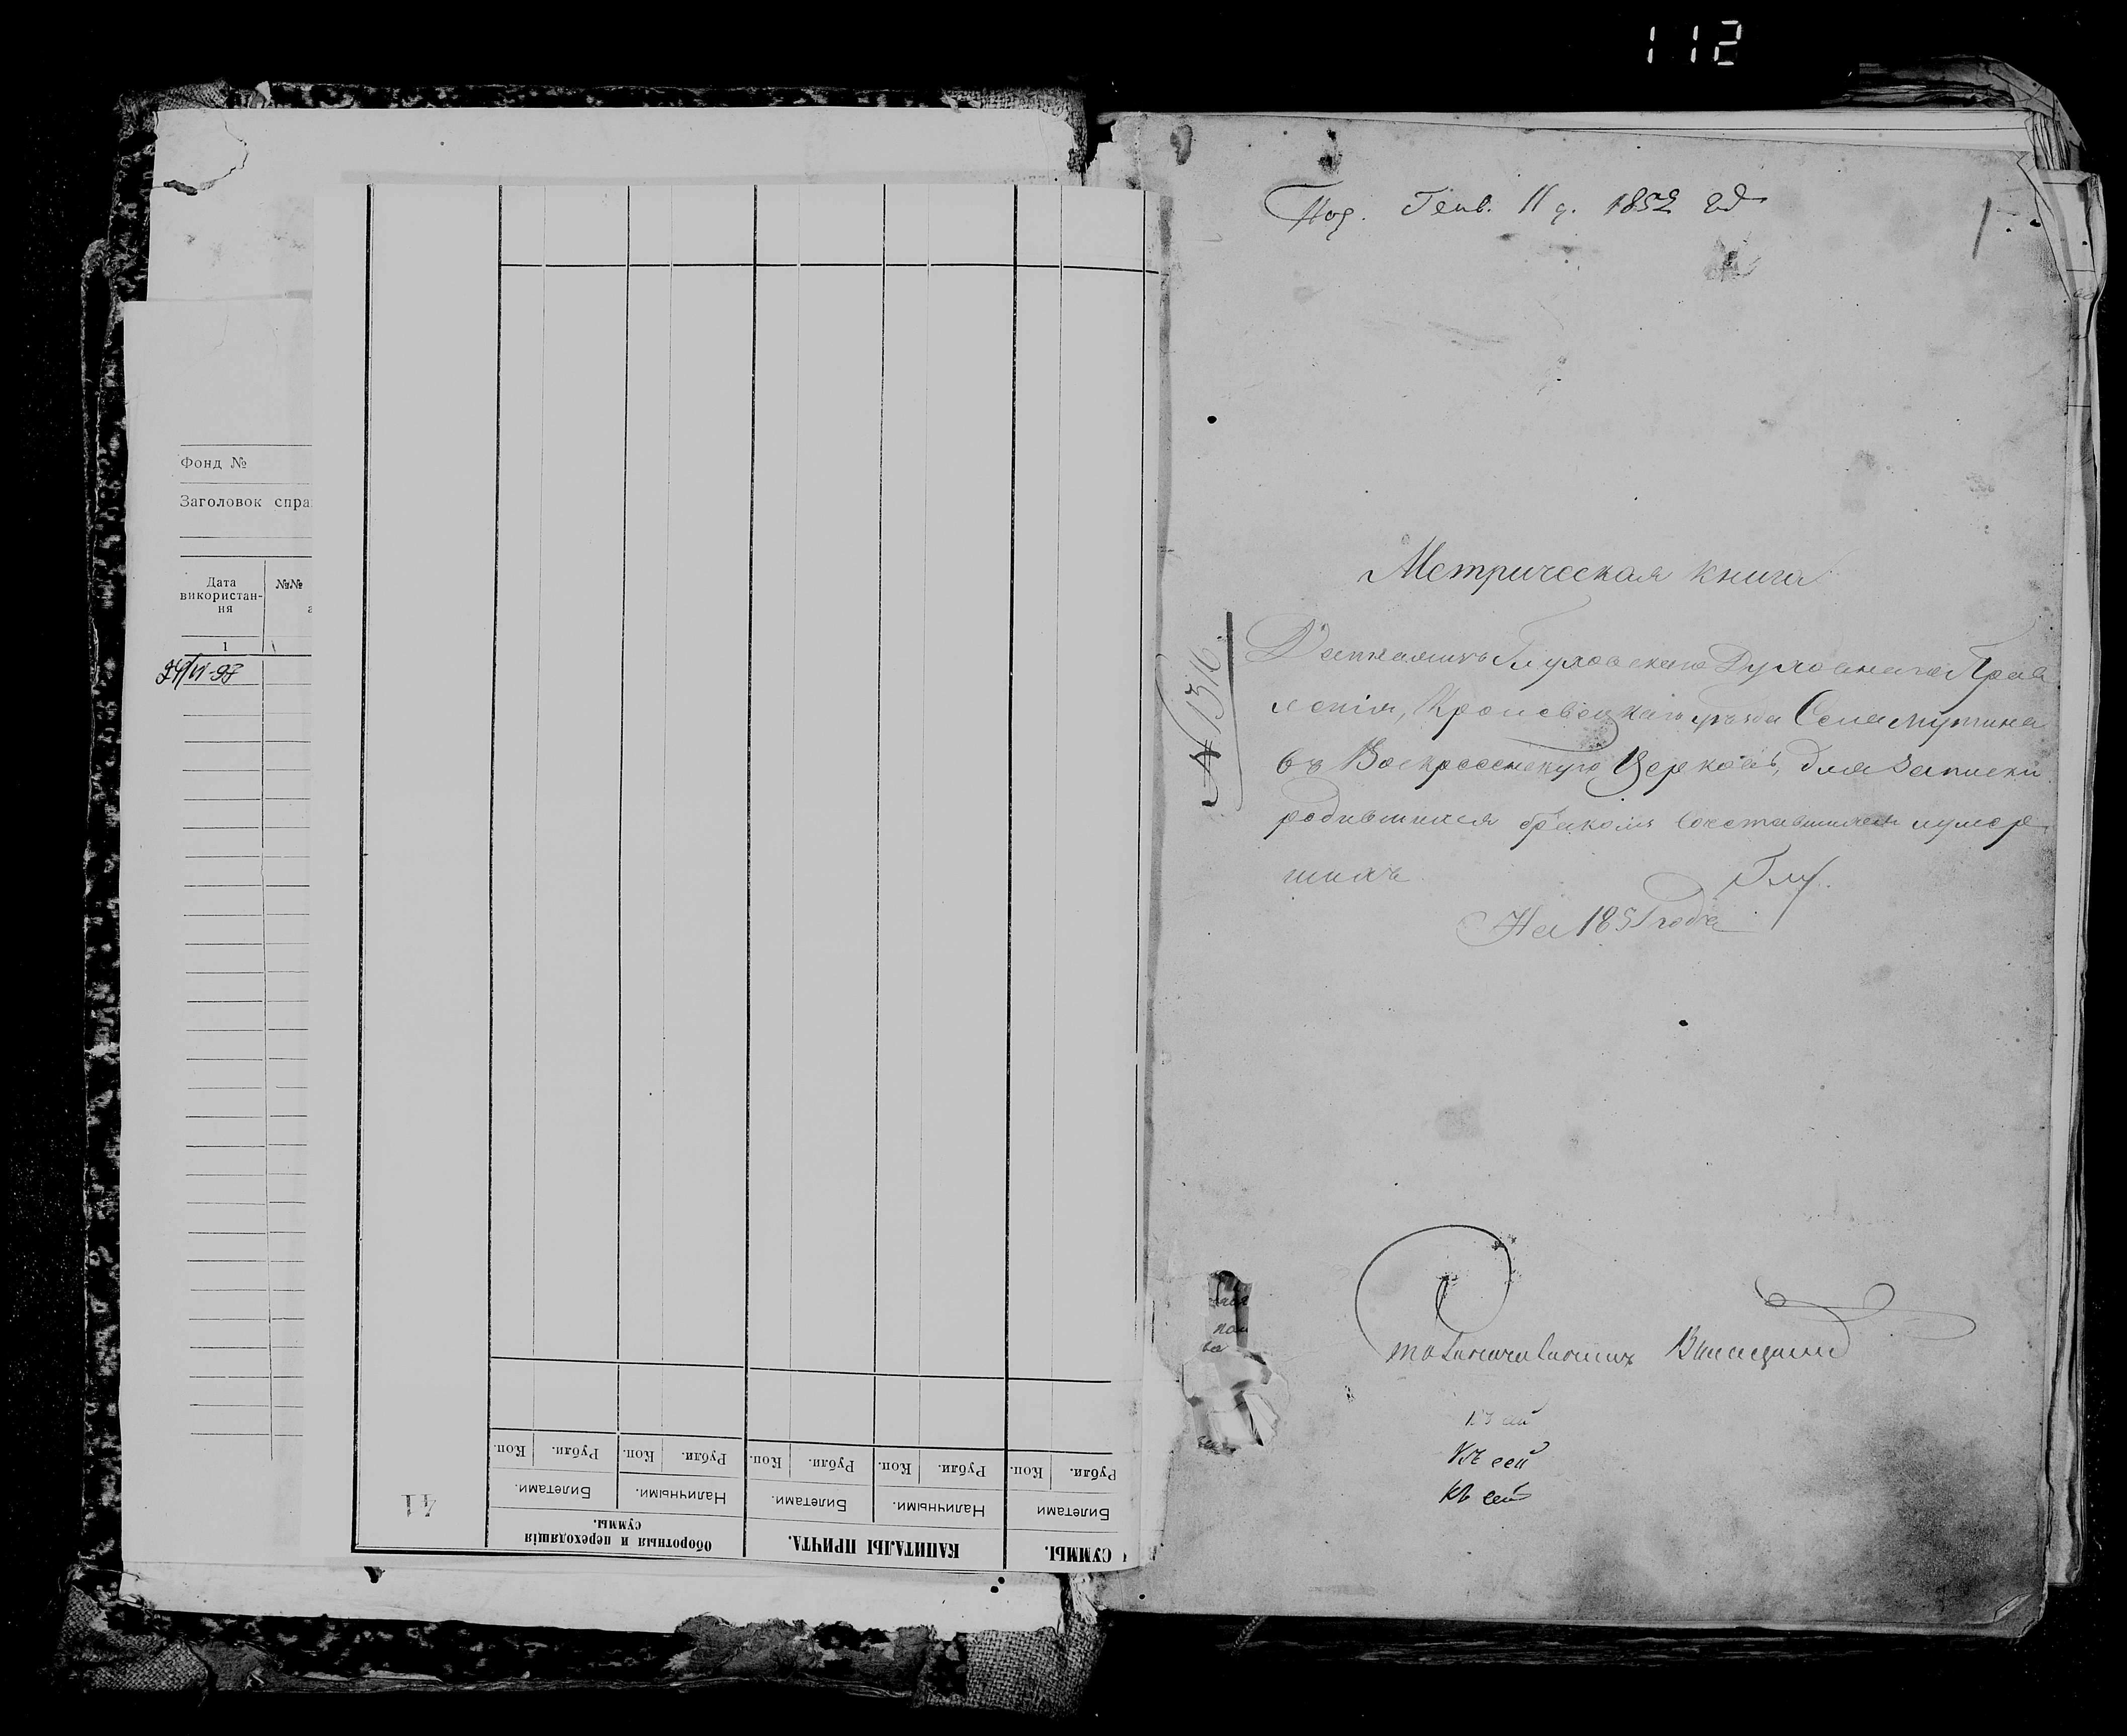 112
Фонд №
Заголовок спра
Дата
використан-
ня
№№
1
СУММЫ.
КАПИТАЛЫ ПРИЧТА.
Оборотныя и переходящія
суммы.
Билетами
Наличными.
Билетами.
Наличными.
Билетами.
Рубли.
Коп.
Рубли.
Коп.
Рубли.
Коп.
Рубли.
Коп.
Рубли.
Коп.
41
Генв. 11 д. 1852
1
Метрическая книга
Данная изъ Глуховскаго Духовнаго Прав
ленія, Кролевецкаго уѣзда Села Мутина
въ Воскресенскую Церковь, для записки
родившихся бракомъ сочетавшихся и умер
шихъ
На 1851 годъ
№ 1316
къ сей
къ сей
къ сей